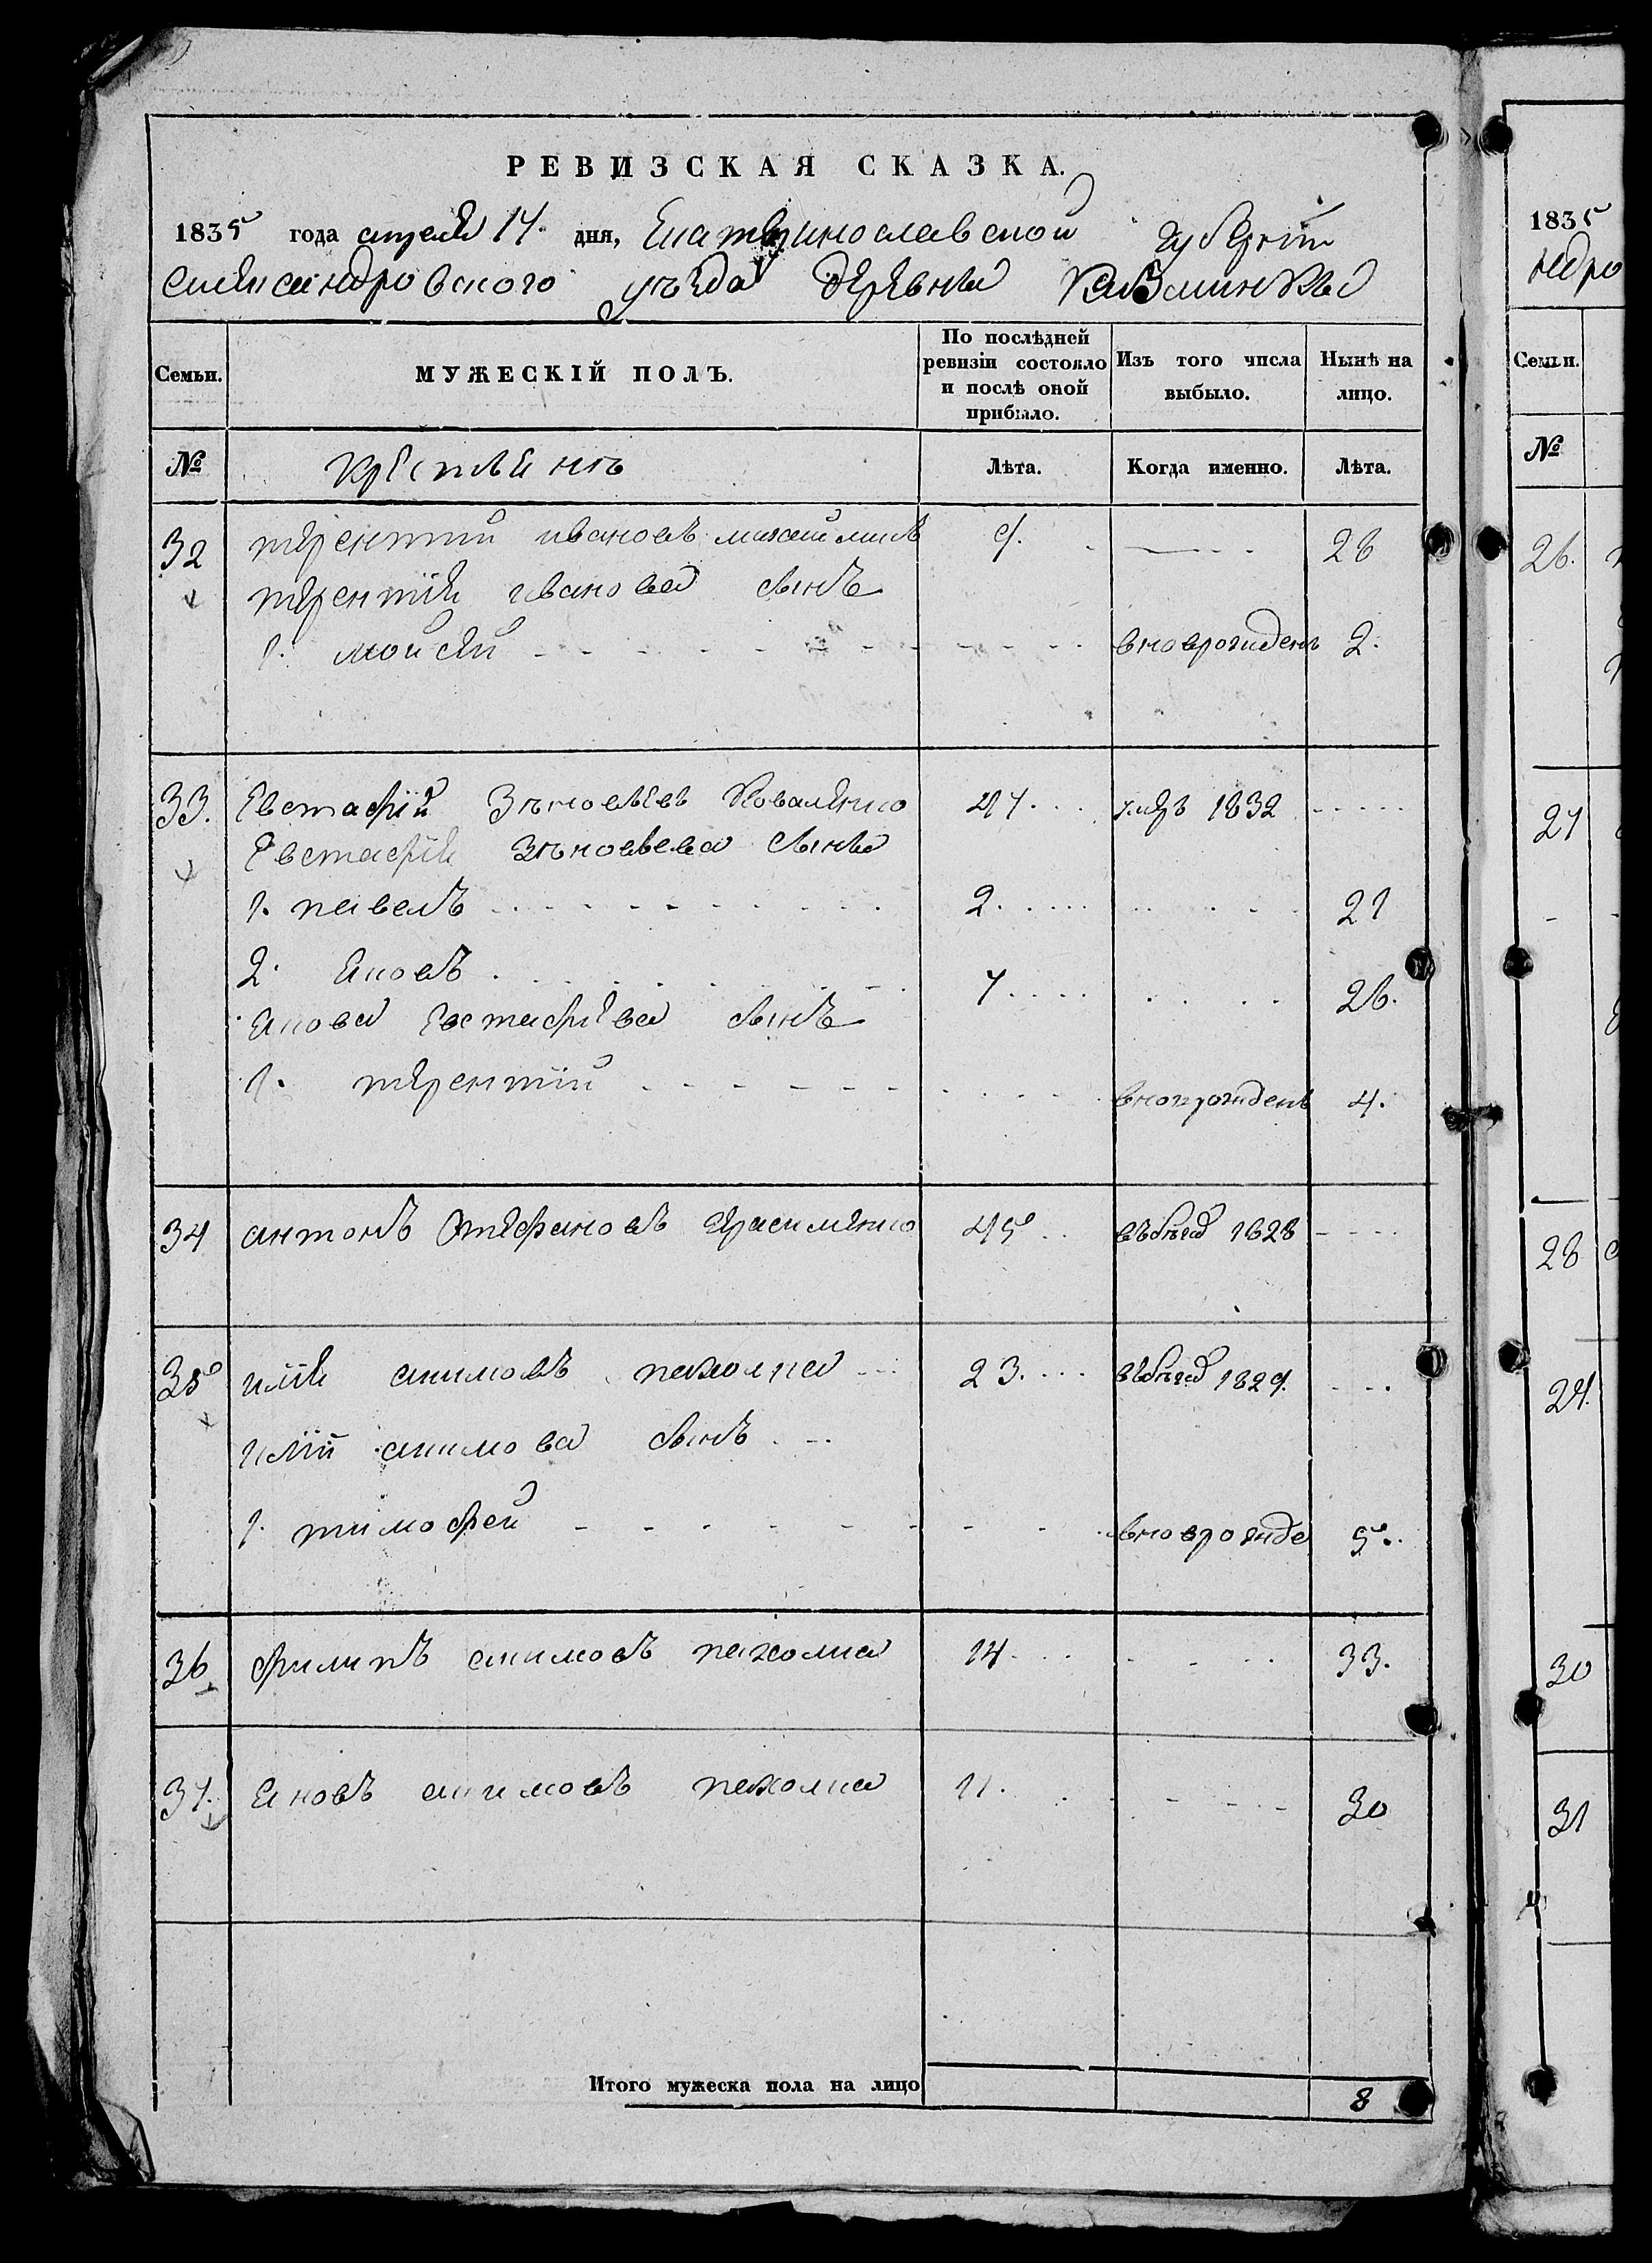 РЕВИЗСКАЯ СКАЗКА.
1835 года апреля 14 дня, Екатеринославской губернии
Александровского уезда деревни
Семьи. МУЖЕСКІЙ ПОЛЪ. По послѣдней ревизіи состояло и послѣ оной прибыло. Изъ того числа выбыло. Нынѣ на лицо.
№ Лѣта. Когда именно. Лѣта.
32 терентий ивановъ 9. 28
терентия иванова сынъ
1. мойсей вновьрожденъ 2.
33. Евстафій Зѣновьевъ Коваленко 47. умре 1832
Евстафия зѣновьева сыны
1. павелъ 2. 21
2. яковъ 7 26.
якова Евстафьева сынъ
1. терентій вноврожденъ 4.
34 антонъ Стефановъ герасименко 45 въ бѣгах 1828
35 илия акимовъ пахолка 23. въ бѣгах 1829.
илии акимова сынъ
1. тимофей вноврожде 5.
36 филипъ акимовъ пахолка 14. 33.
37. яковъ акимовъ пахолка 11. 30
Итого мужеска пола на лицо 8
1835
ндро
Семьи.
№
26.
27
28
29.
30
31